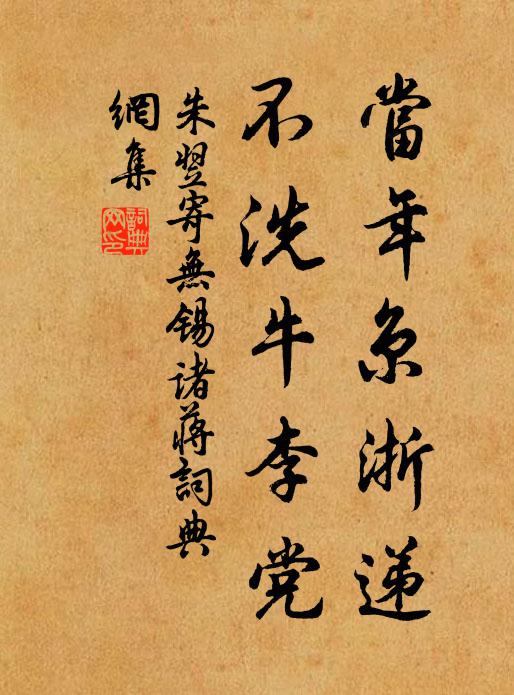 當年京浙递
不洗牛李党
朱翌寄無锡诸蒋詞典
網集
詞典網印